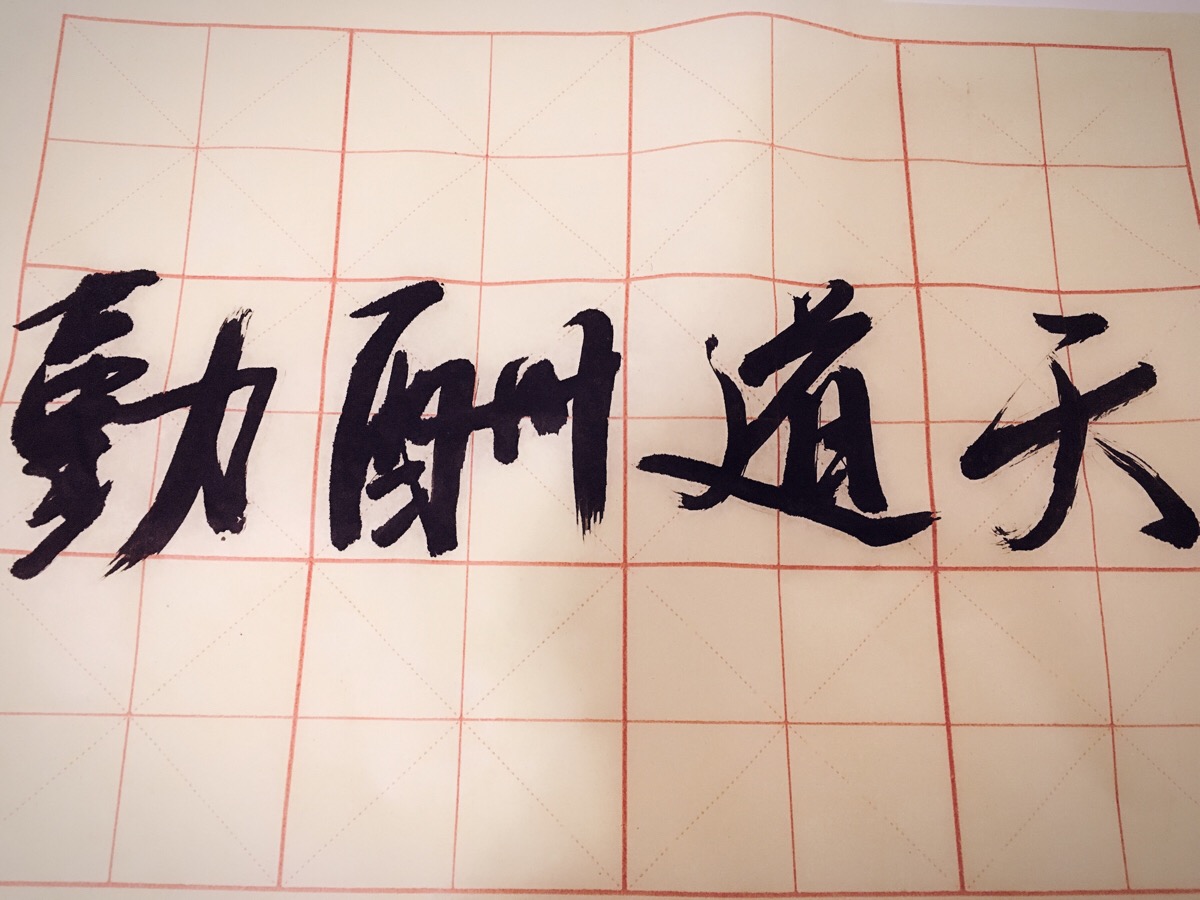 天道酬動